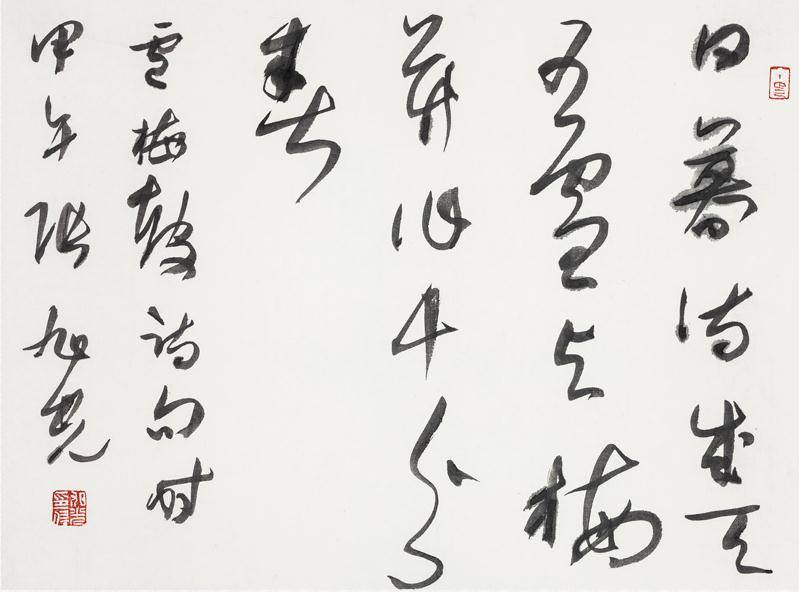 日暮诗成天
又雪与梅
并作十分
春
盧梅坡诗句时
甲午张旭光